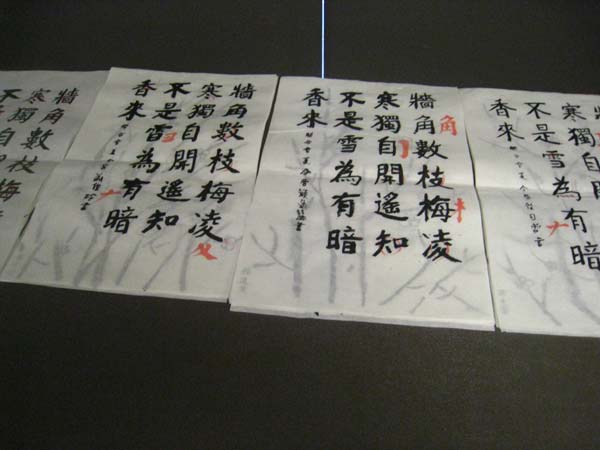 牆角數枝梅
寒獨自
牆角數枝梅凌
寒獨自開遙知
不是雪為有暗
香來
牆角數枝梅凌
角
寒獨自開遙知
不是雪為有暗
香來
寒獨自開
不是雪為有暗
香來